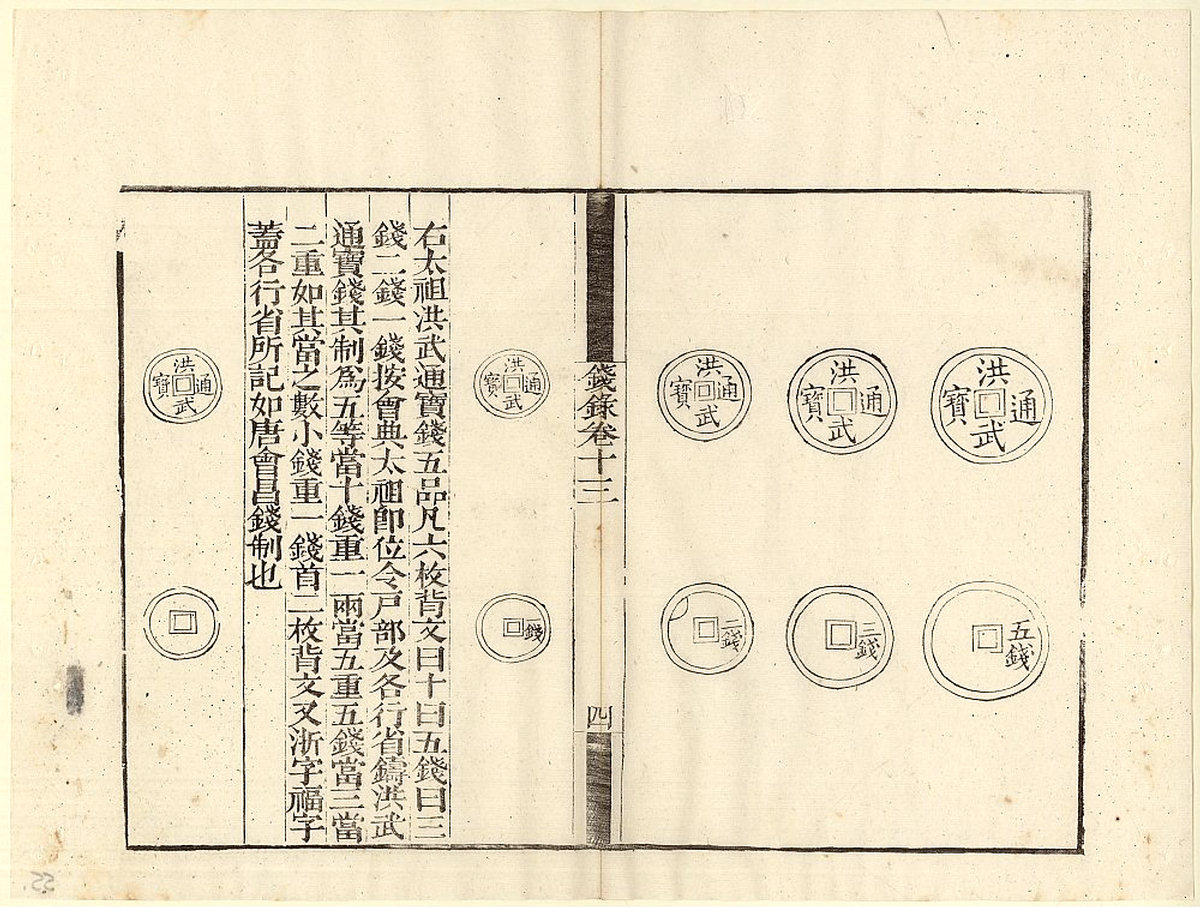 洪武通寶
五錢
洪武通寶
三錢
洪武通寶
二錢
錢錄卷十三
四
洪武通寶
錢
右太祖洪武通寶錢五品凡六枚背文曰十曰五錢曰三
錢二錢一錢按會典太祖卽位令戸部及各行省鑄洪武
通寶錢其制爲五等當十錢重一兩當五重五錢當三當
二重如其當之數小錢重一錢首二枚背文又浙字福字
蓋各行省所記如唐會昌錢制也
洪武通寶